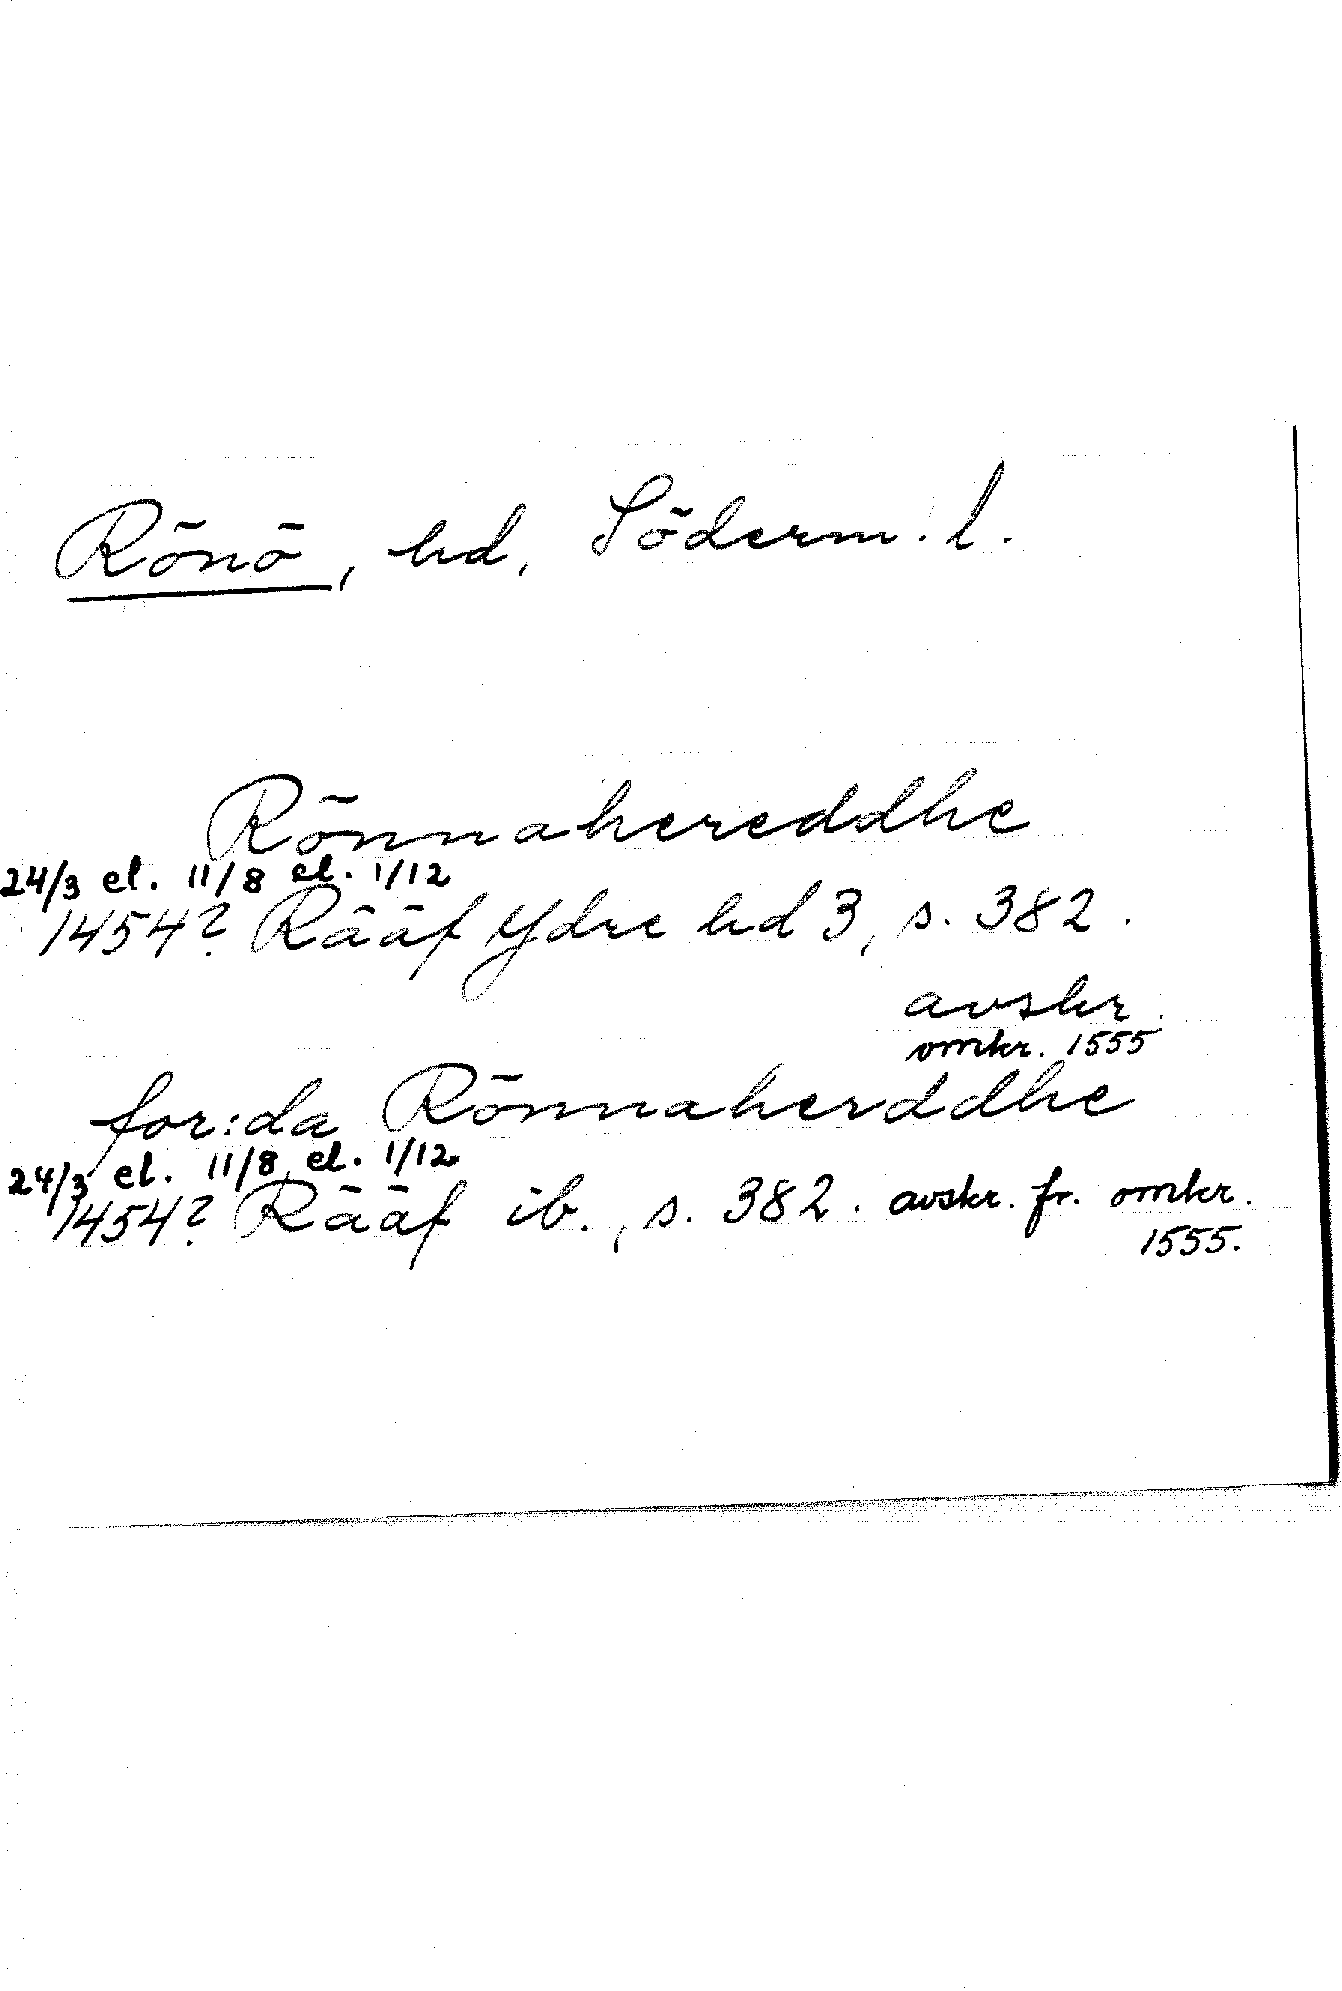 Rönö, hd, Söderm. l.
Rönnahereddhe
24/3 el. 11/8 el. 1/12
1454? Rääf Ydre hd 3, s. 382.
avskr.
omkr. 1555
for:da Rönnaherddhe
24/3 el. 11/8 el. 1/12
1454? Rääf ib., s. 382. avskr. fr. omkr.
1555.